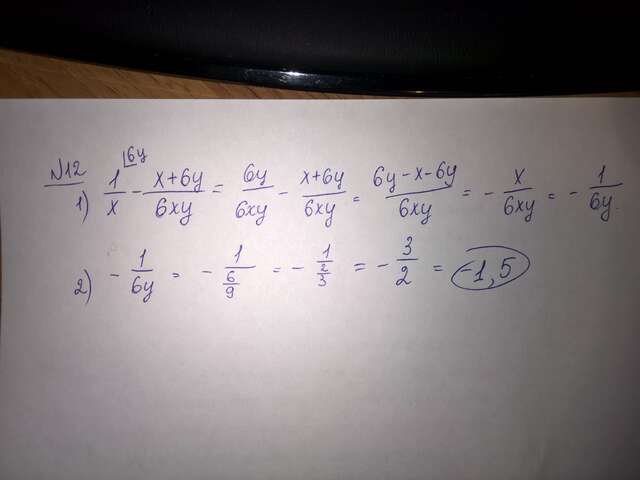 №12
1) 1/x^{\6y} - (x+6y)/(6xy) = 6y/(6xy) - (x+6y)/(6xy) = (6y-x-6y)/(6xy) = - x/(6xy) = - 1/(6y)
2) - 1/(6y) = - 1/(6/9) = - 1/(2/3) = - 3/2 = -1,5